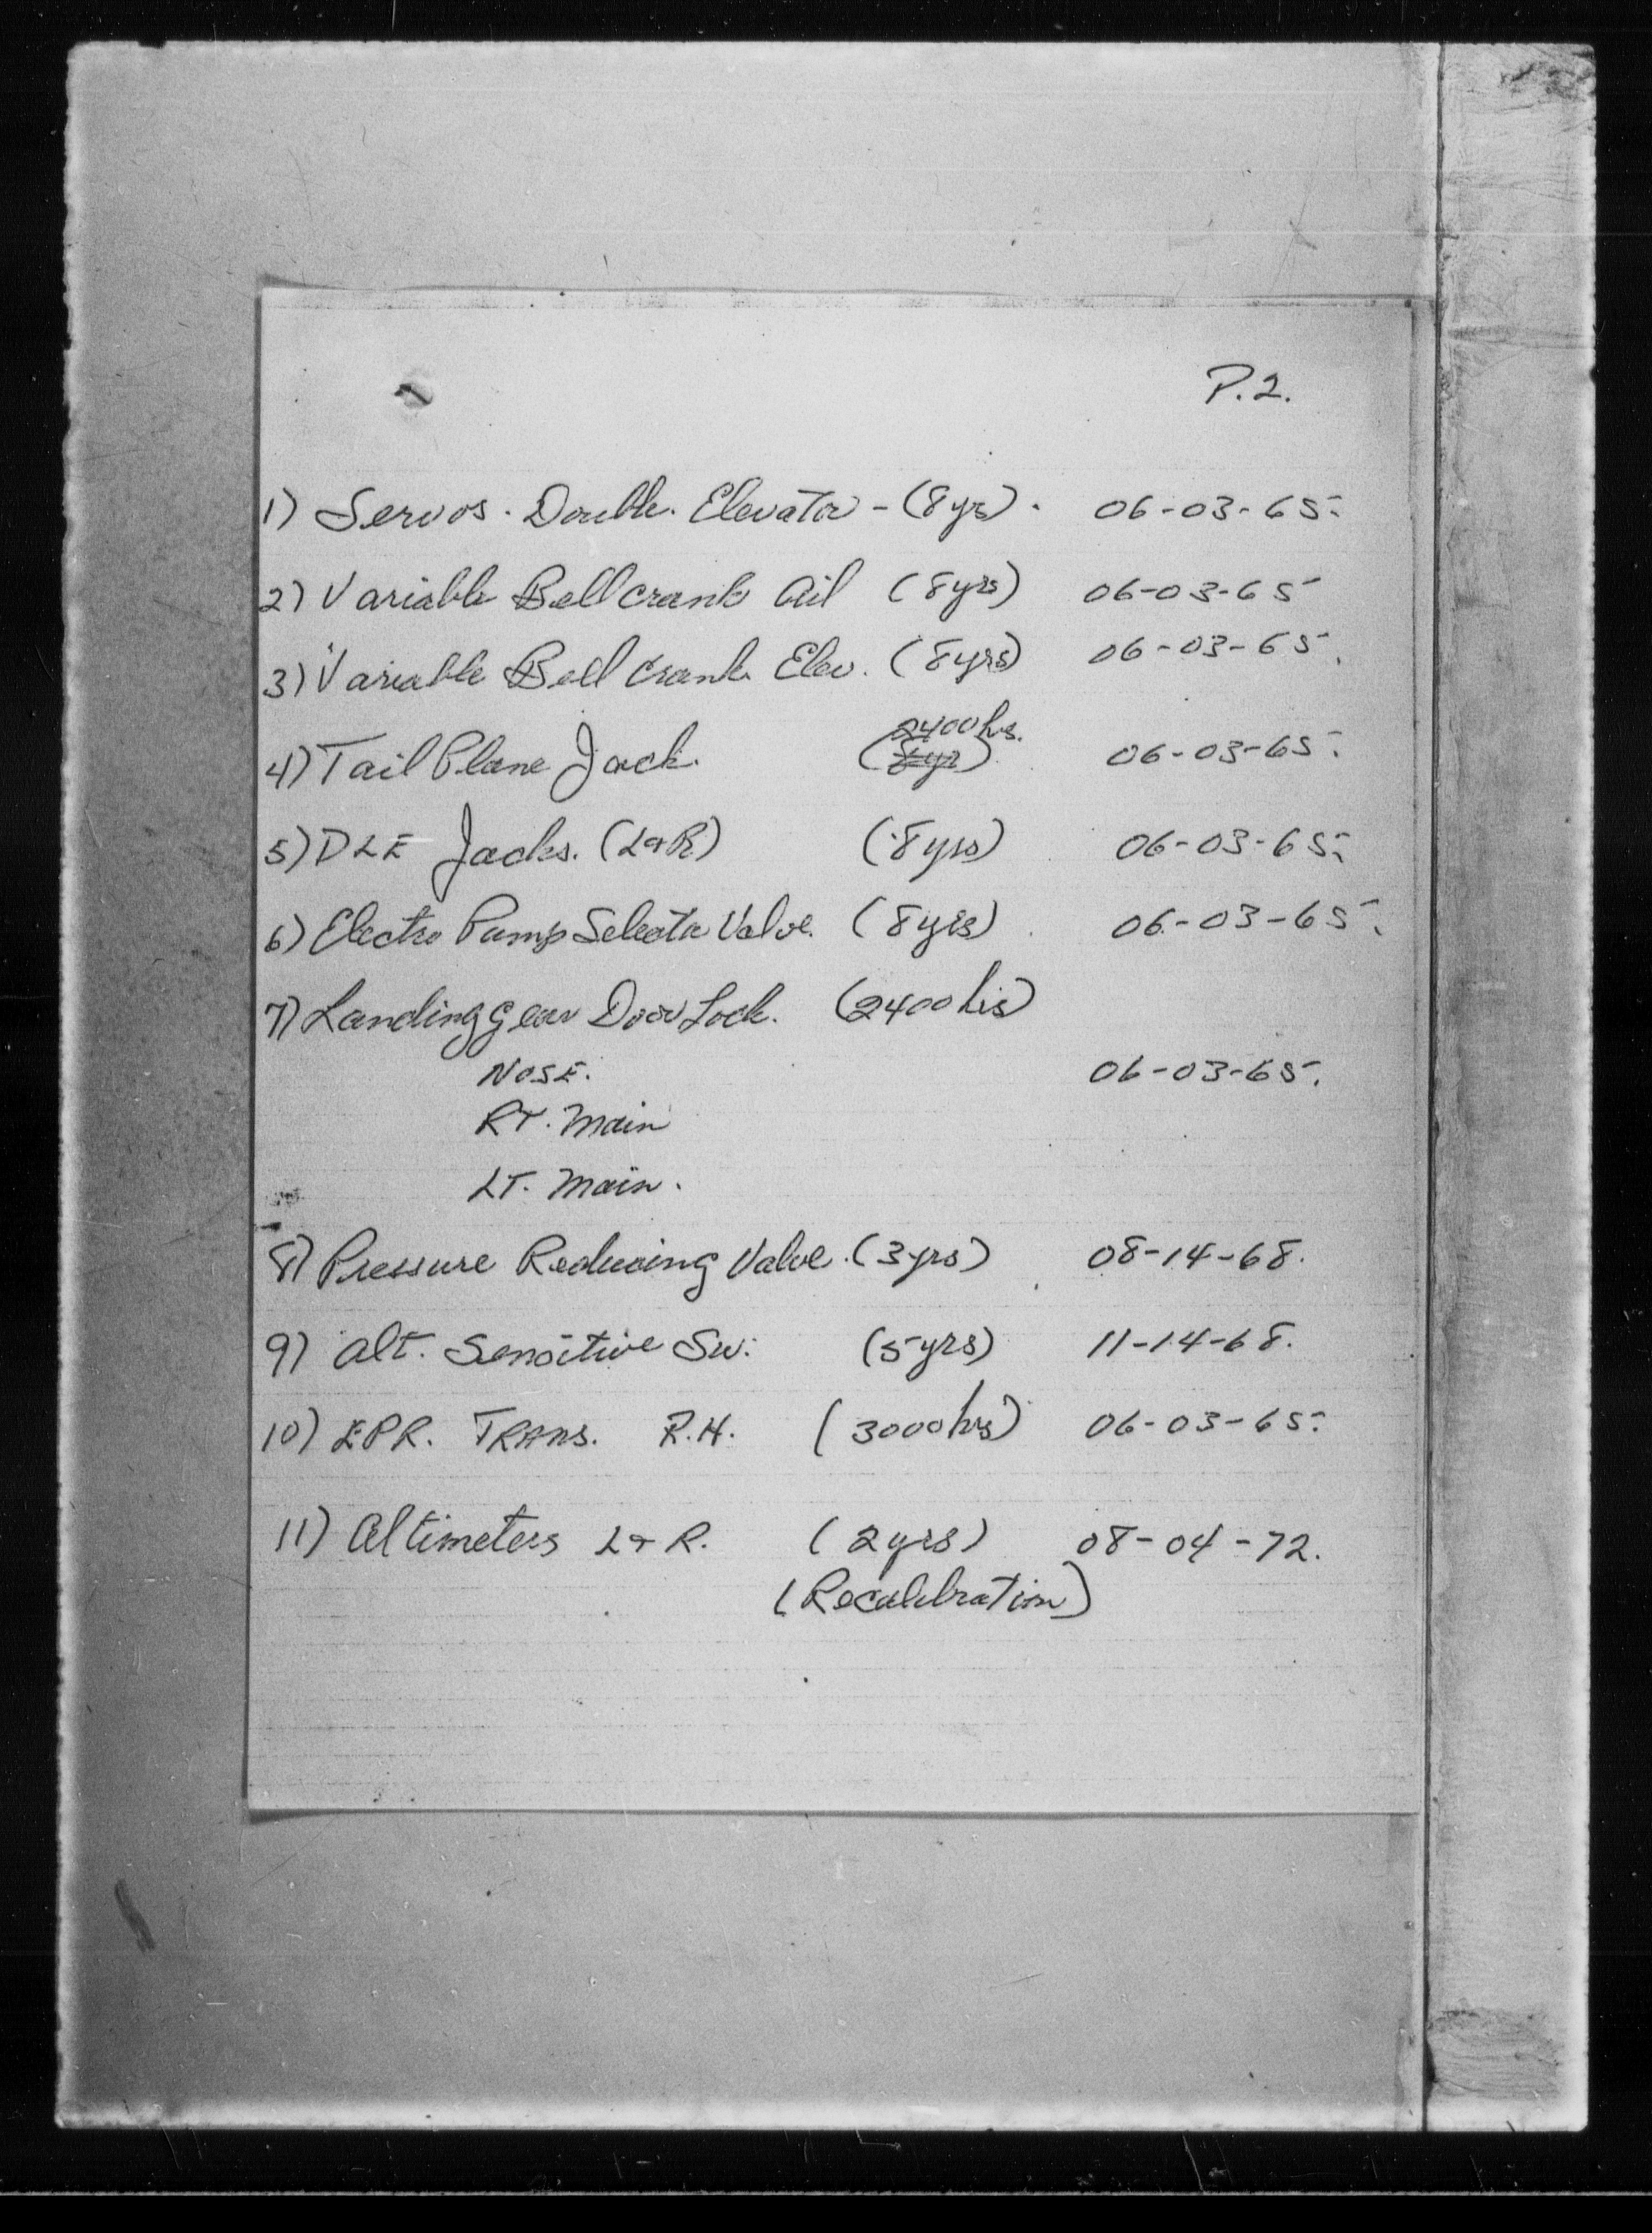 P.2.
1) Servos. Double. Elevator - (8 yrs). 06-03-65.
2) Variable Bellcrank Ail (8 yrs) 06-03-65
3) Variable Bell Crank Elev. (8 yrs) 06-03-65.
2400 hrs.
4) Tail Plane Jack. (8 yr) 06-03-65.
5) DLE Jacks. (L & R) (8 yrs) 06-03-65.
6) Electro Pump Selector Valve. (8 yrs) 06-03-65.
7) Landing gear Door Lock. (2400 hrs)
NOSE. 06-03-65.
RT. Main
LT. Main.
8) Pressure Reducing Valve. (3 yrs) 08-14-68.
9) Alt. Sensitive Sw. (5 yrs) 11-14-68.
10) EPR. TRANS. R.H. (3000 hrs) 06-03-65.
11) Altimeters L & R. (2 yrs) 08-04-72.
(Recalibration)